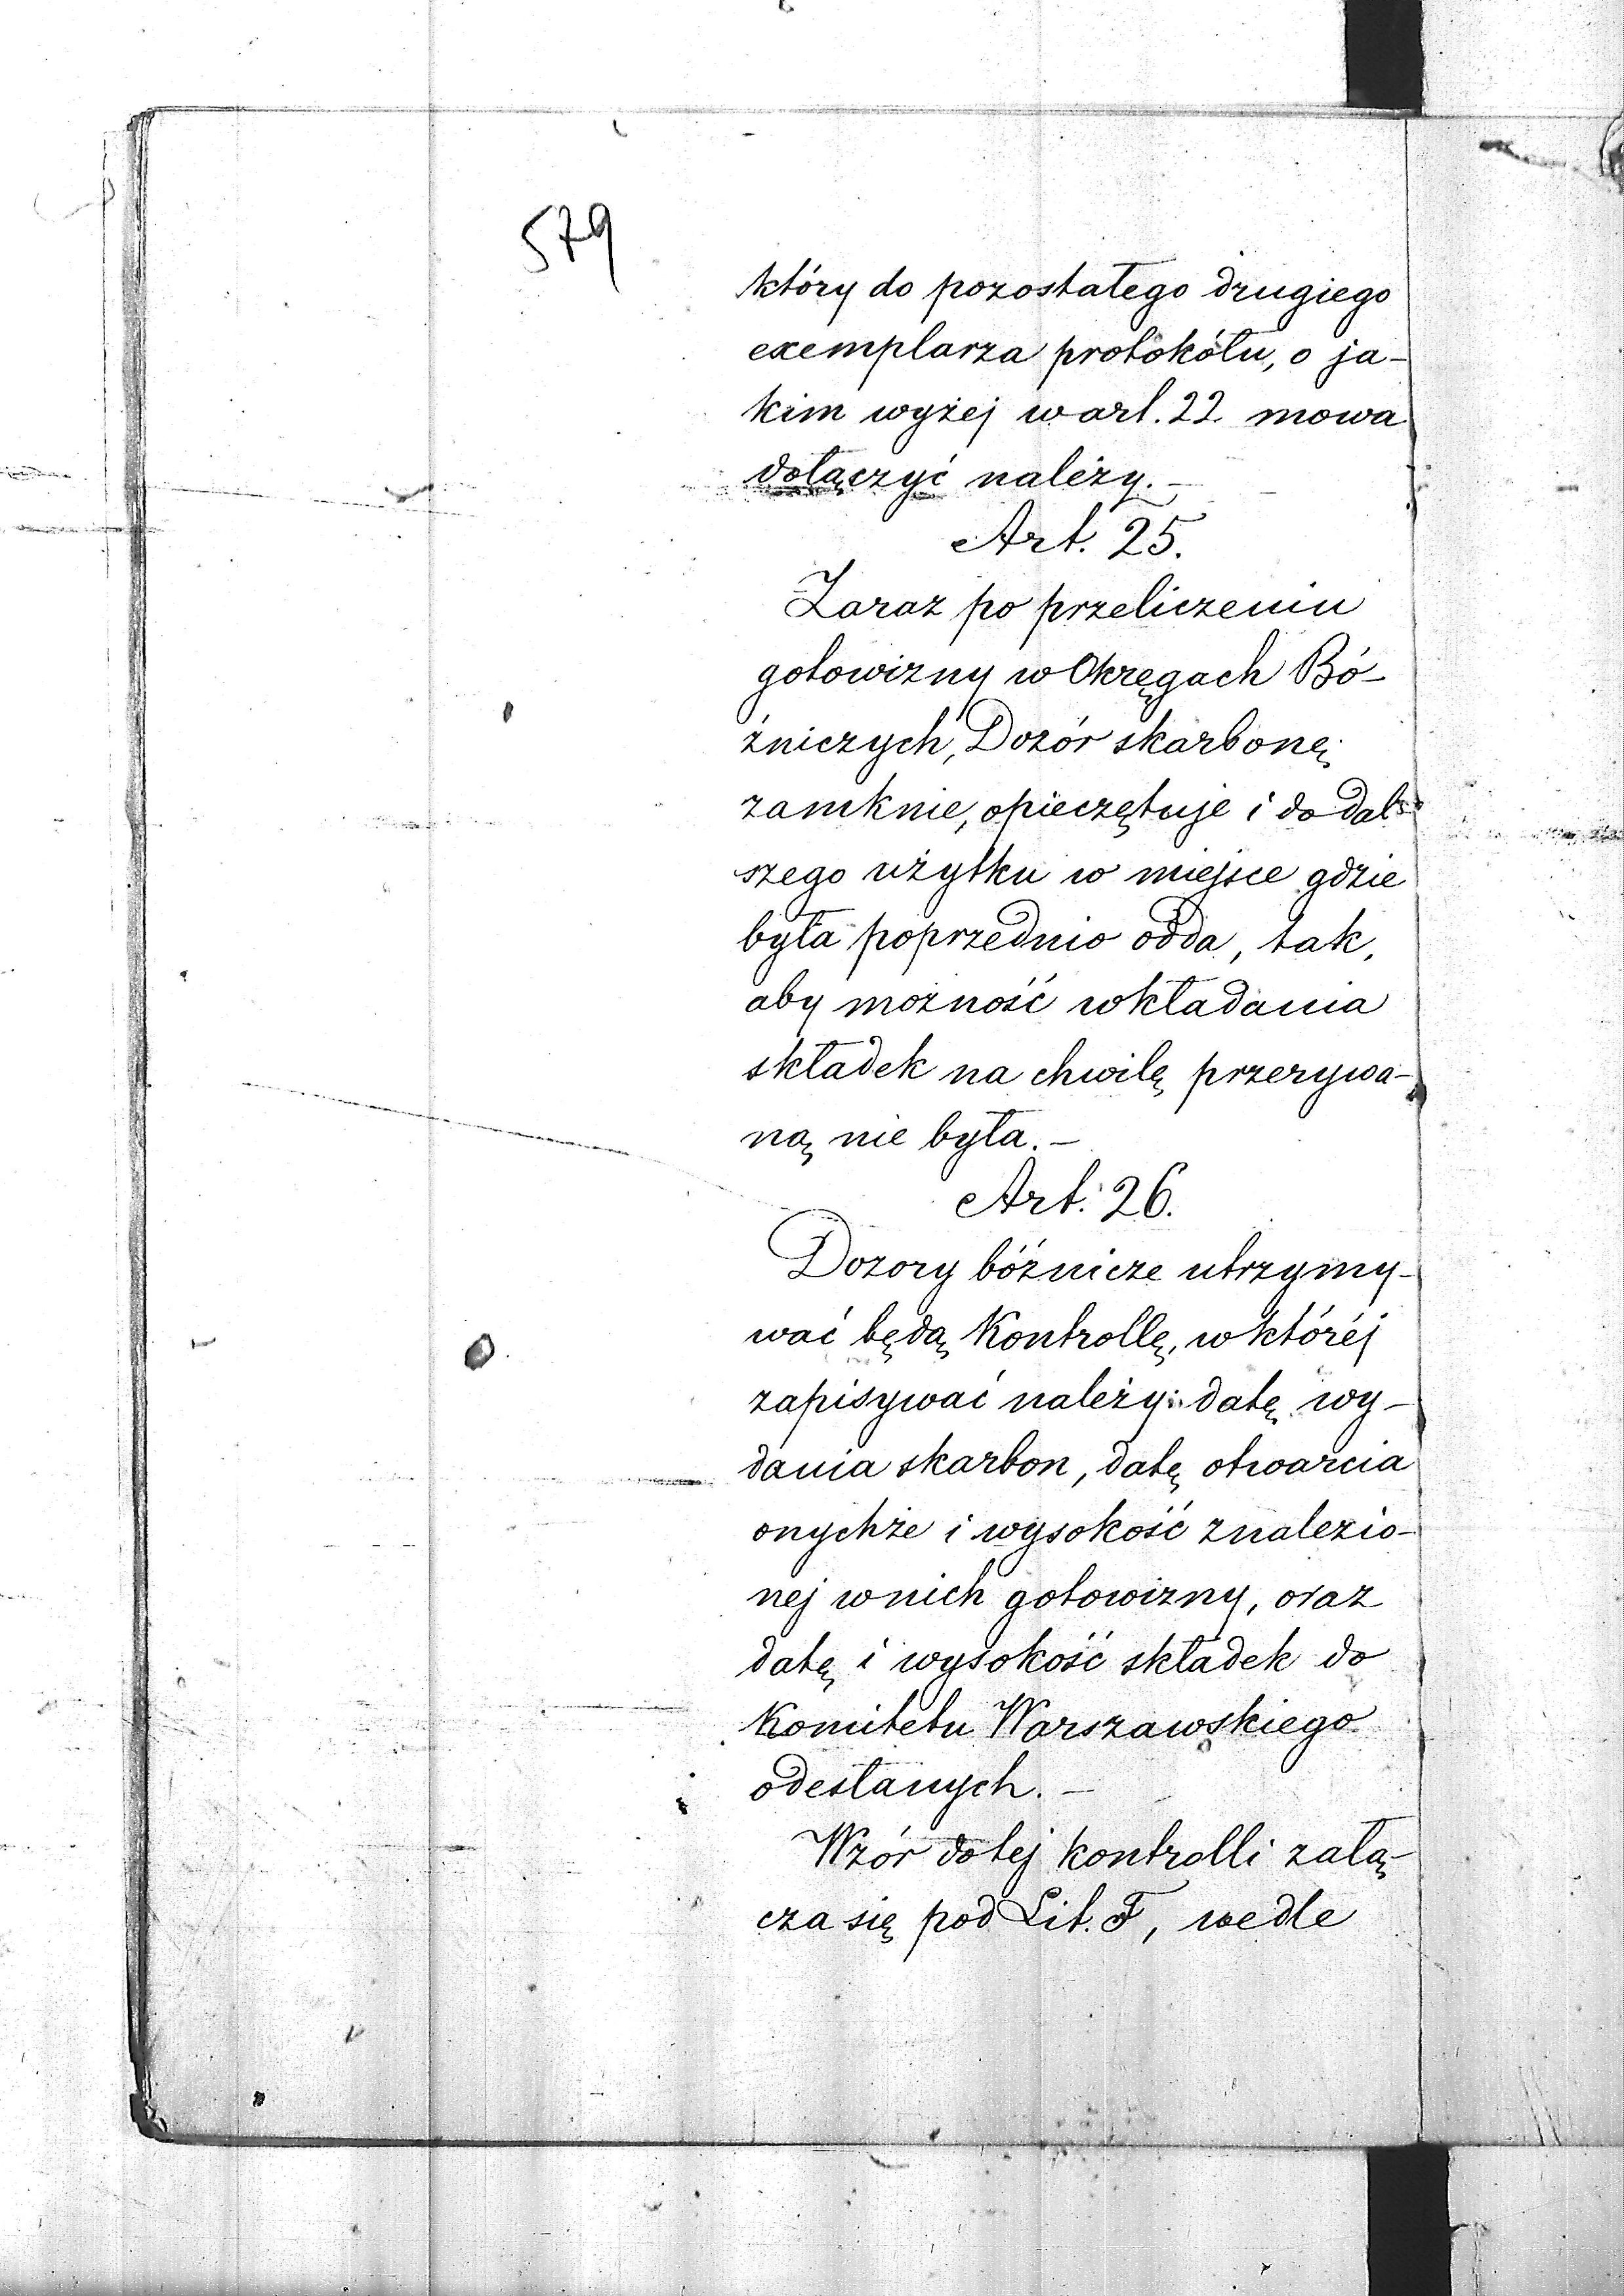 579
który do pozostałego drugiego
exemplarza protokółu, o ja-
kim wyżej w art. 22 mowa
dołączyć należy. -
Art. 25.
Zaraz po przeliczeniu
gotowizny w Okręgach Bó-
źniczych, Dozór skarbonę
zamknie, opieczętuje i do dal-
szego użytku w miejsce gdzie
była poprzednio odda, tak,
aby możność wkładania
składek na chwilę przerywa-
ną nie była. -
Art. 26.
Dozory bóźnicze utrzymy-
wać będą Kontrollę, w któréj
zapisywać należy: datę wy-
dania skarbon, datę otwarcia
onychże i wysokość znalezio-
nej w nich gotowizny, oraz
datę i wysokość składek do
Komitetu Warszawskiego
odesłanych. -
Wzór do tej kontrolli załą-
cza się pod Lit. F, wedle